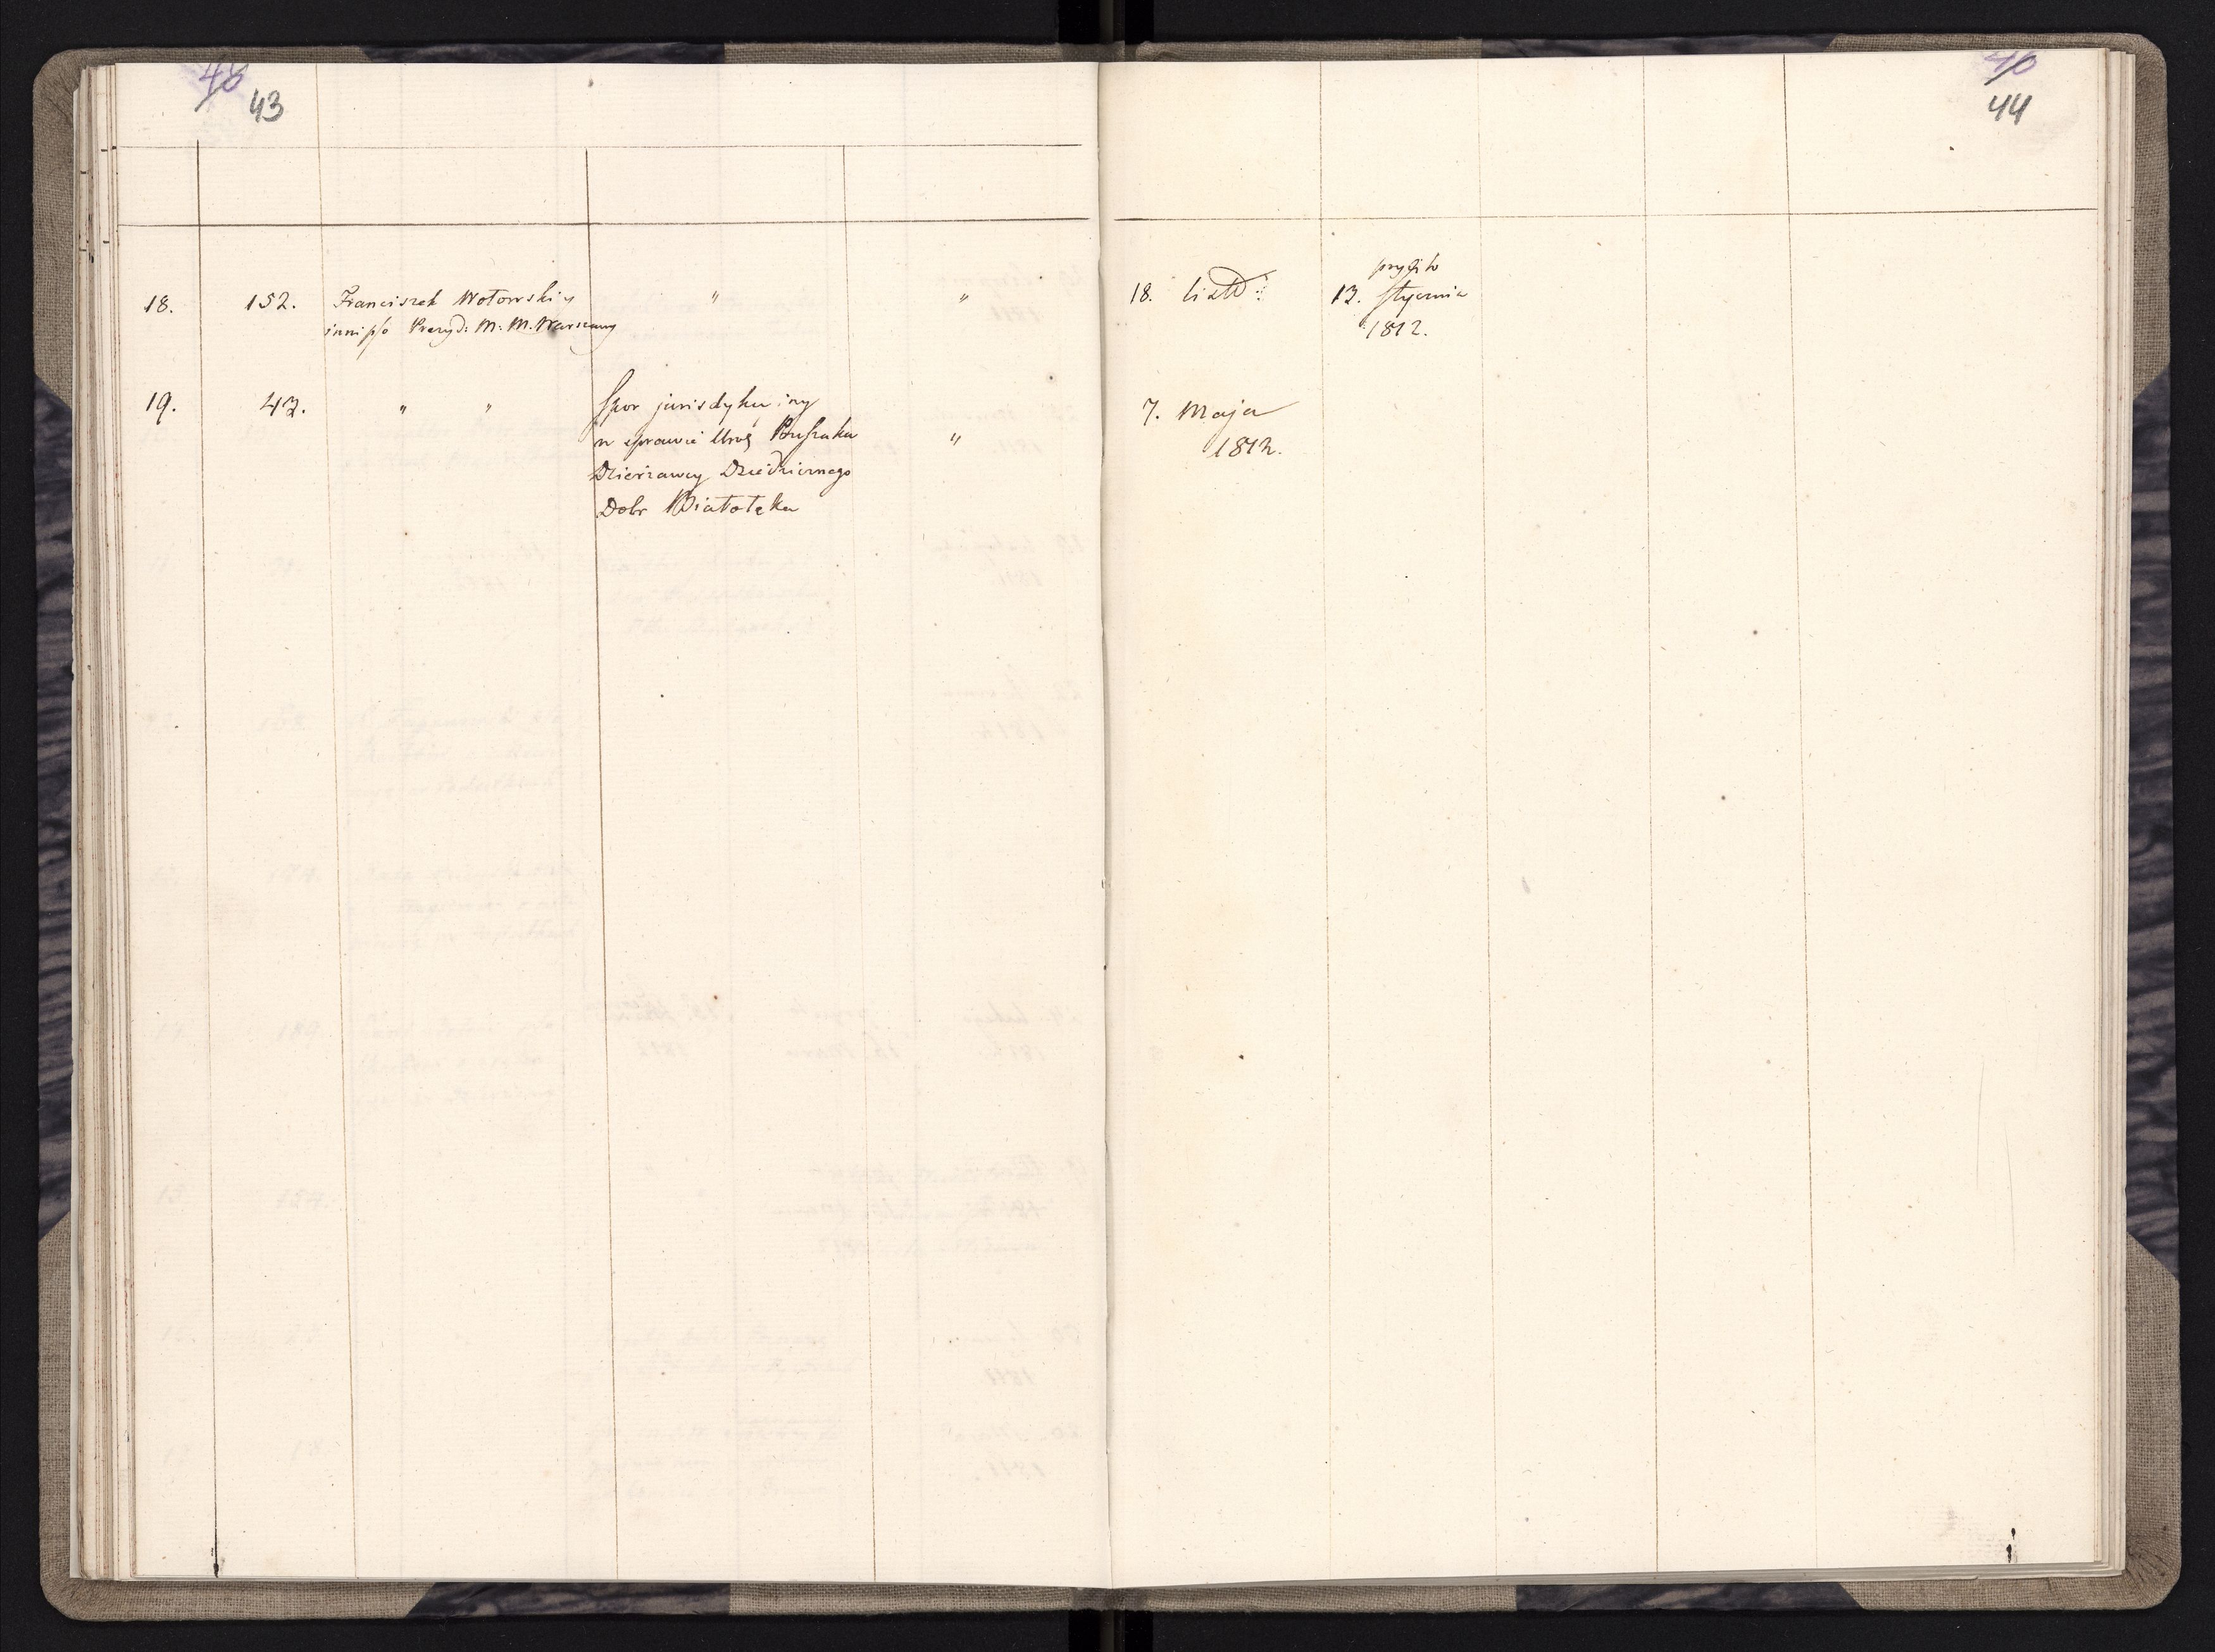 43
18.
152.
Franciszek Wołowski y
inni p/o Prezyd: M: M. Warszawy
"
"
19.
43.
" "
Spor jurisdykcyiny
w sprawie Uro
Dzierzawcy Dziedzicznego
Dobr Białołęka
"
44
18. List:
przyszło
13. Stycznia
1812.
7. Maja
1812.